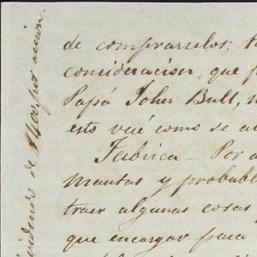 de comprarselos; 
consideracion, que p
Papá John Bull, 
esto vaé como se a
Fabrica - Por a
mantas y probabl
traer algunas cosas
que encargar para
dividendo de 1400$ por accion.